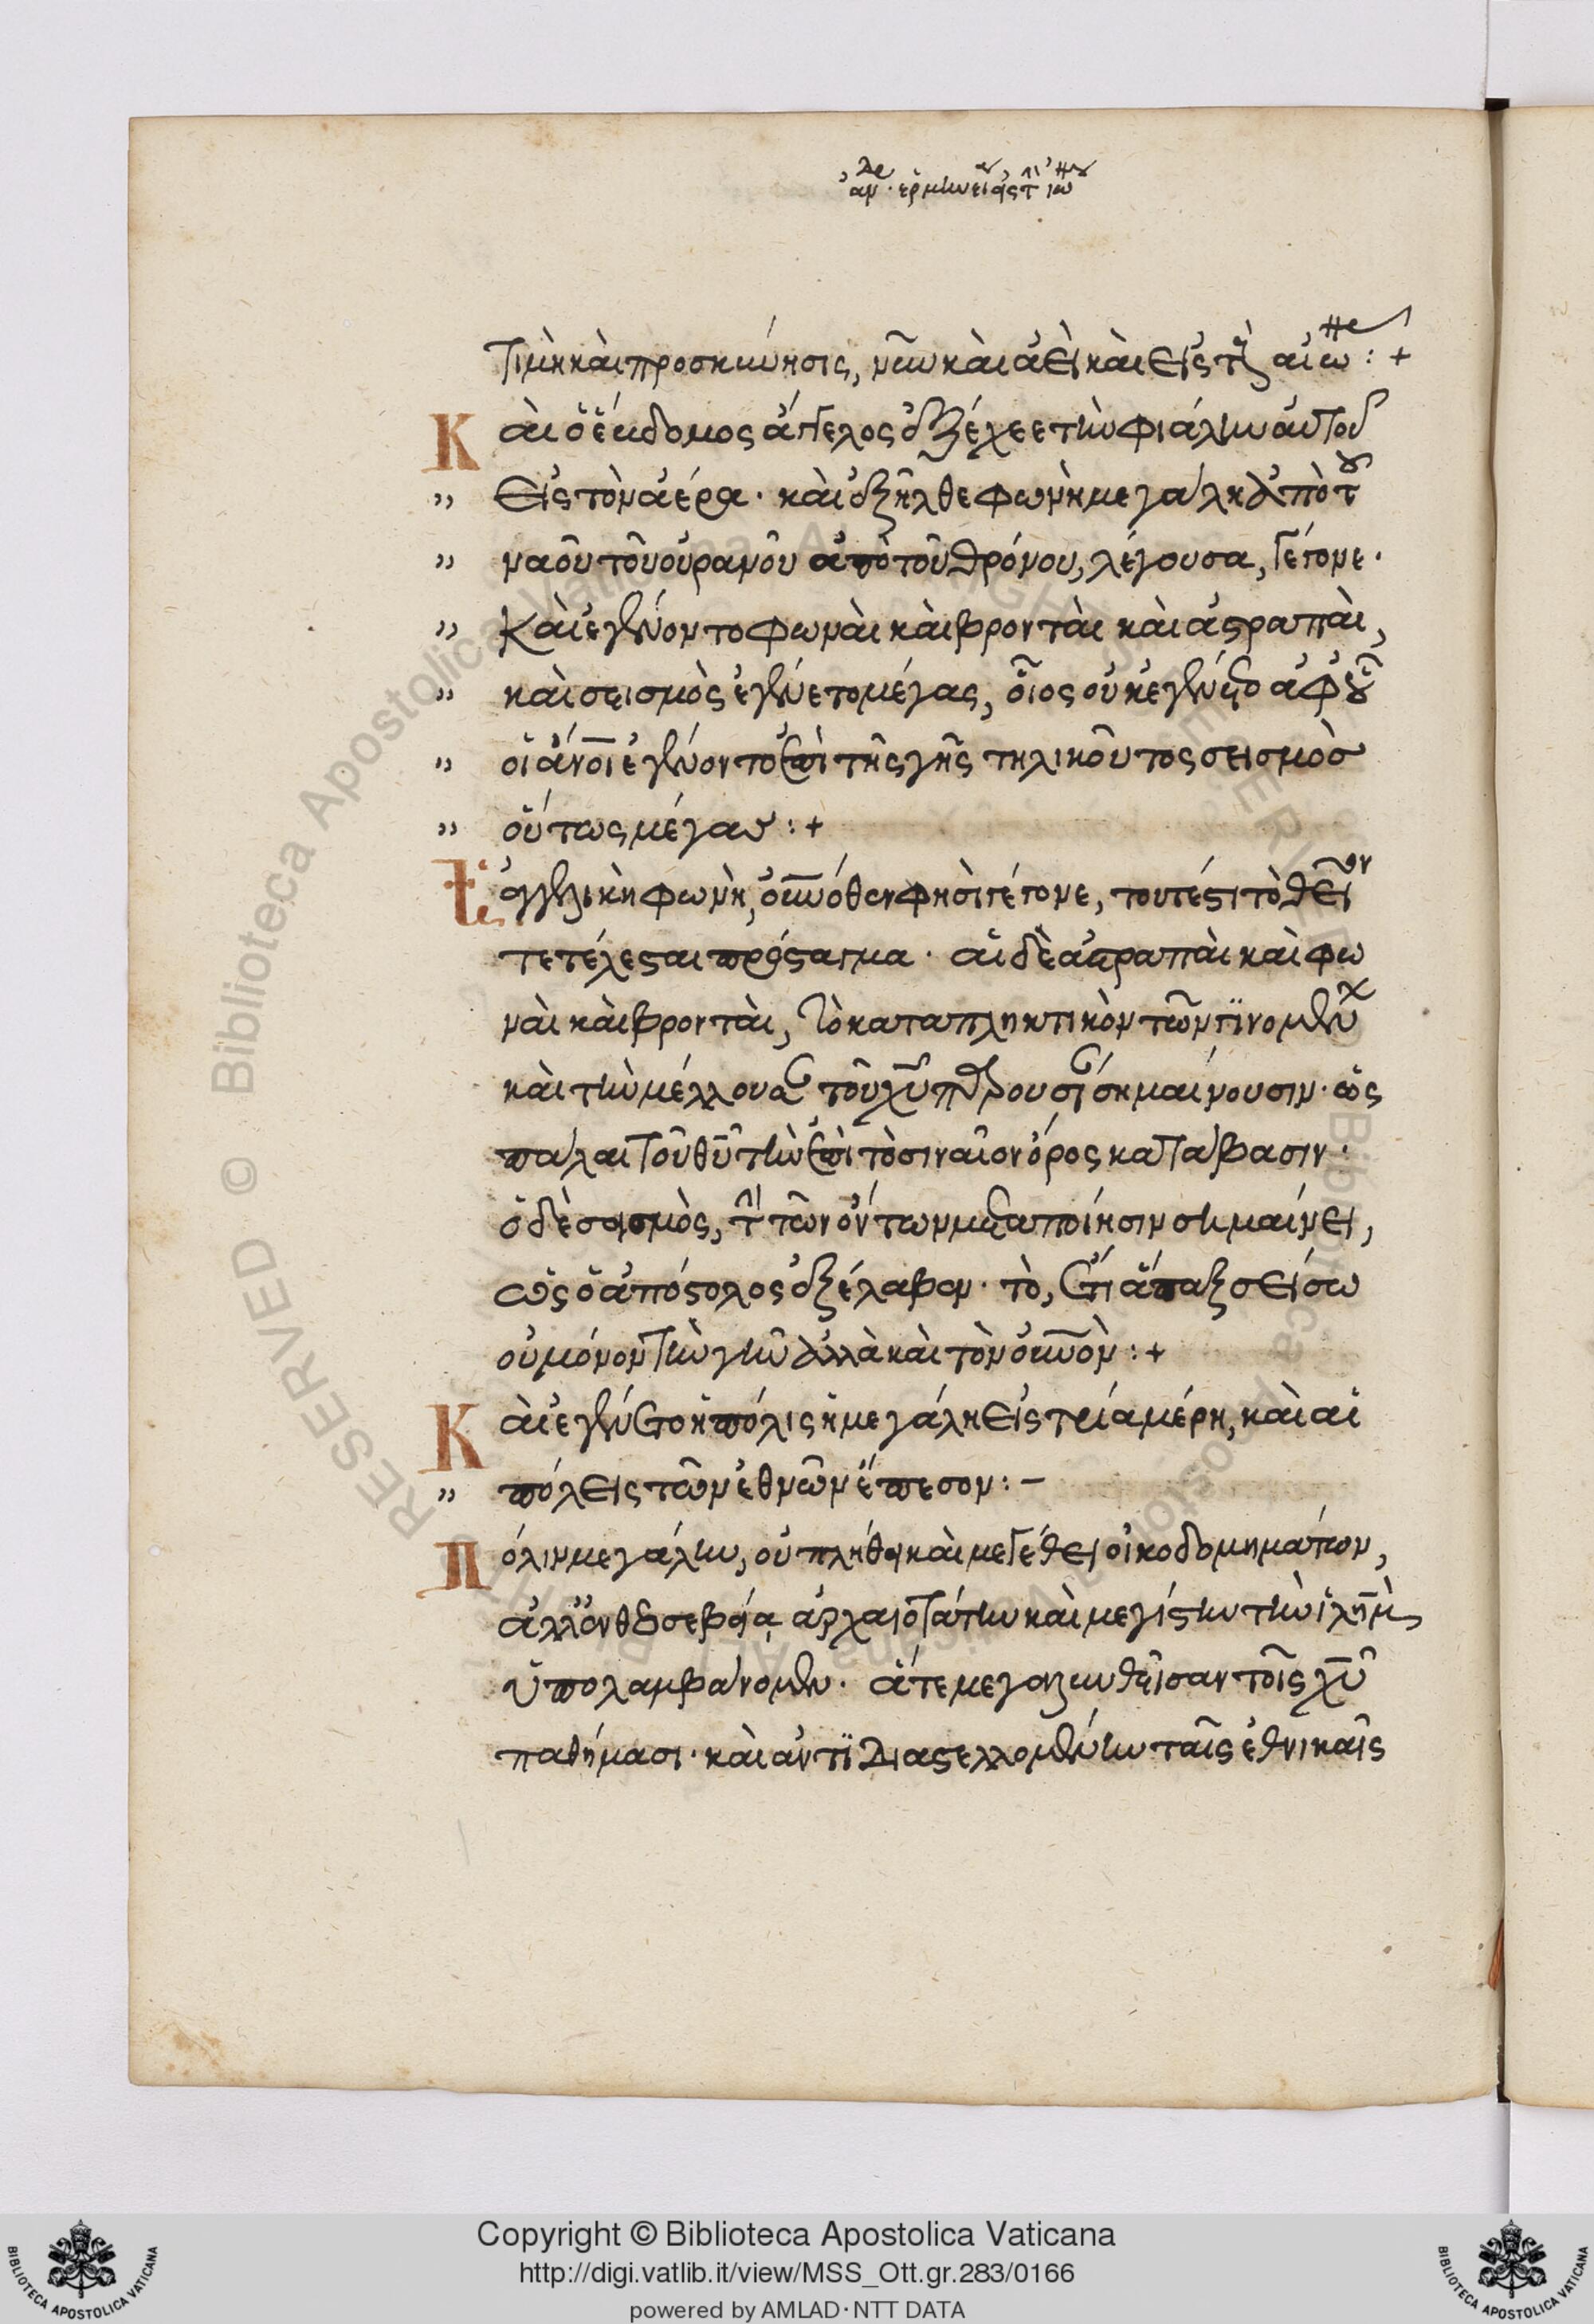 τιμὴ καὶ προσκύνησις, νῦν καὶ ἀεὶ καὶ εἰς τ αἰω :+
Καὶ ὁ ἕβδομος ἄγγελος ἐξέχεε τὴν φιάλην αὐτοῦ
" εἰς τὸν ἀέρα· καὶ ἐξῆλθε φωνὴ μεγάλη ἀπὸ τοῦ
" ναοῦ τοῦ οὐρανοῦ ἀπὸ τοῦ θρόνου, λέγουσα, γέγονε·
" Καὶ ἐγένοντο φωναὶ καὶ βρονταὶ καὶ ἀστραπαὶ,
" καὶ σεισμὸς ἐγένετο μέγας, οἷος οὐκ ἐγένετο ἀφ' οὗ
" οἱ ἄνοι ἐγένοντο ἐπὶ τῆς γῆς τηλικοῦτος σεισμὸσ
" οὕτως μέγας :+
ἀγγελικὴ φωνὴ, οὐνόθεν φησὶ γέγονε, τουτέστι τὸ θεῖον
τετέλεσται πρόσταγμα· αἱ δὲ ἀστραπαὶ καὶ φω
ναὶ καὶ βρονταὶ, τὸ καταπληκτικὸν τῶν γινομένων
καὶ τὴν μέλλουσαν τοῦ χῦ παρουσίαν σημαίνουσιν· ὡς
πάλαι τοῦ θῦ τὴν ἐπὶ τὸ σιναῖον ὄρος κατάβασιν·
ὁ δὲ σεισμὸς, τὴν τῶν ὄντων μεταποίησιν σημαίνει,
ὡς ὁ ἀπόστολος ἐξέλαβεν· τὸ, ἔτι ἅπαξ σείσω
οὐ μόνον τὴν γῆν ἀλλὰ καὶ τὸν οὐνὸν :+
Καὶ ἐγένετο ἡ πόλις ἡ μεγάλη εἰς τρία μέρη, καὶ αἱ
" πόλεις τῶν ἐθνῶν ἔπεσον :-
Πόλιν μεγάλην, οὐ πλήθει καὶ μεγέθει οἰκοδομημάτων,
ἀλλ' ἐν θεοσεβείᾳ ἀρχαιοτάτην καὶ μεγίστην τὴν ἱλημ
ὑπολαμβάνομεν· ἅτε μεγαλυνθεῖσαν τοῖς χῦ
παθήμασι· καὶ ἀντιδιαστελλομένην ταῖς ἐθνικαῖς
Copyright © Biblioteca Apostolica Vaticana
http://digi.vatlib.it/view/MSS_Ott.gr.283/0166
powered by AMLAD·NTT DATA